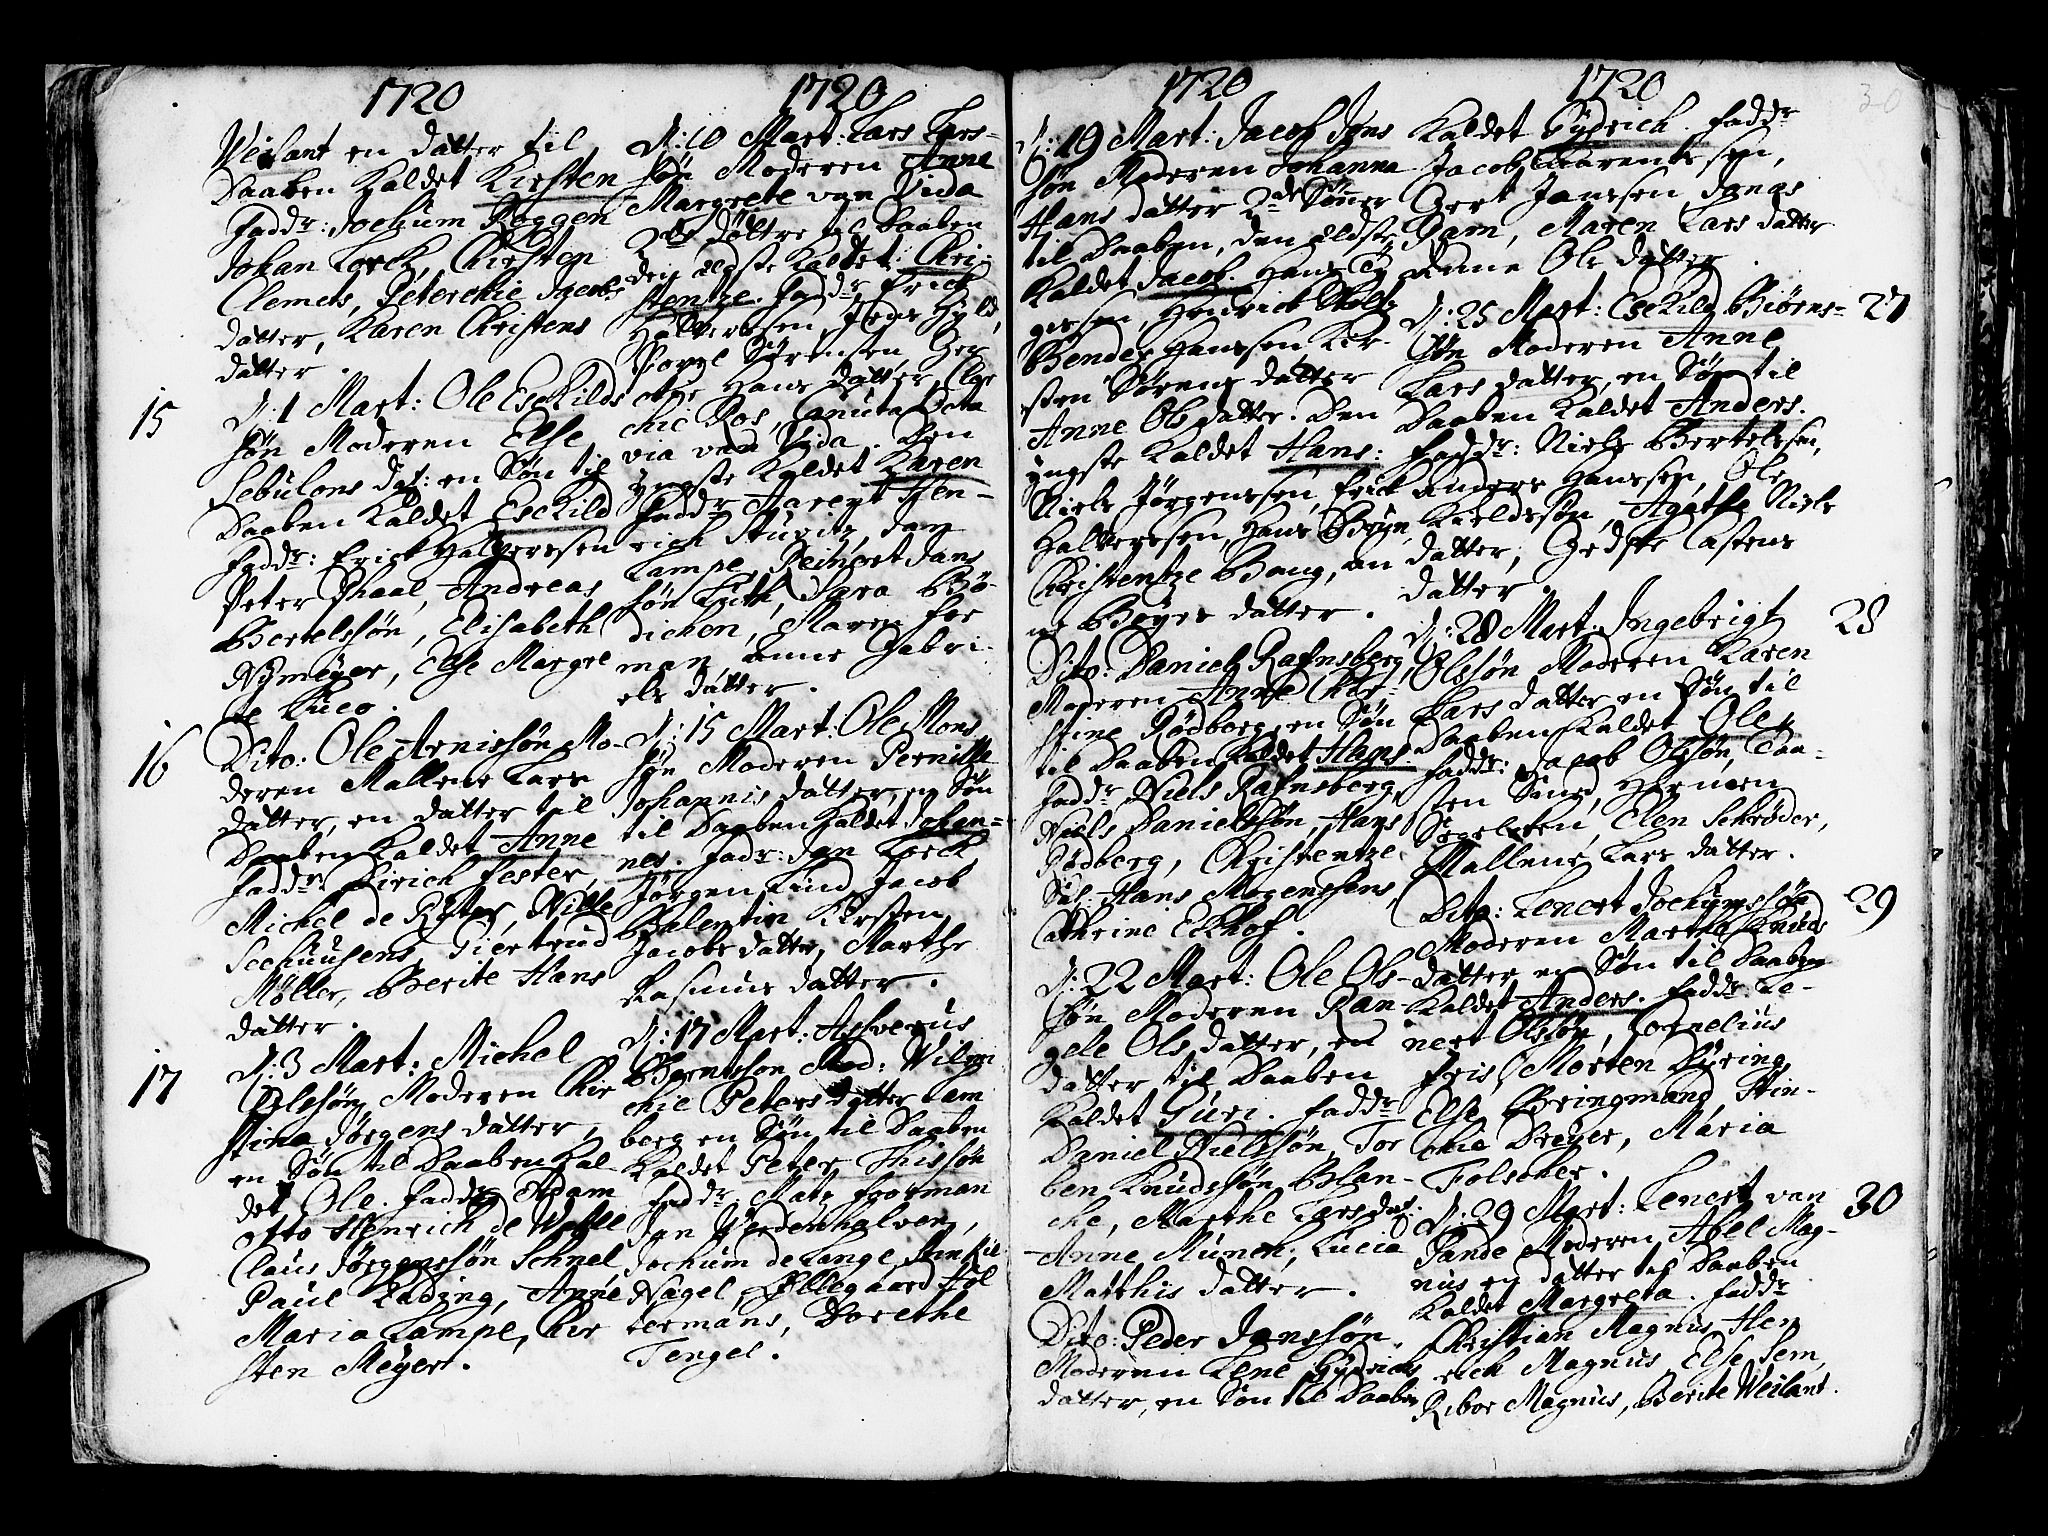 1720
Weilant en datter til
Daaben Kaldet Kirsten
Faddr: Jochum Roggen
Johan Lorck, Kirsten
Clemets, Peterchie Jacobs
datter, Karen Christens
datter.
15
D: 1 Mart: Ole Eskilds
søn Moderen Else
Sebulons dat: en Søn til
Daaben Kaldet Eskild
Faddr: Erick Halversen
Peter Phaal, Andreas
Bertelssøn, Elisabeth
Nÿmeÿer, Else Margre
te Lüco.
16
Dito: Ole Arnissøn Mo-
deren Mallene Lars
datter, en datter til
Daaben Kaldet Anne
Faddr: Dirich Fester,
Michel de Rÿter, Wille
Seehuusens, Giertrud
Møller, Berite Hans
datter.
17
D: 3 Mart: Michel
Olssøn, Moderen Kir
stina Jørgens datter,
en Søn til Daaben Kal
det Ole. Faddr Adam
Otto Henrich de Wasle
Claus Jørgenssøn Schnel
Paul Lading, Anne
Maria Lampe, Kir
sten Meÿer.
1720
D: 10 Mart: Lars Lars-
søn Moderen Anne
Margrete von Vida
2de døttre til Daaben
den ælgste Kaldet: Chri-
stentze. Faddr, Erich
Halversen, Jens Hÿld,
Povel Sørensen, Ger
othe Hans datter, Elsr
chie Ros, Canuta Octa
via van Vida. Den
yngste Kaldet Karen
Faddr Harent Hen-
rich Sturitz, Jan
Lampe, Reinert Jans
søn Lüth, Sara Bø-
dichen, Maren Foe
man, Anne Gabri-
els datter.
D: 15 Mart: Ole Mons
søn Moderen Pernille
Johannis datter, en Søn
til Daaben Kaldet Johan=
nes. Fadr: Jan Lorck
Jørgen Lind, Jacob
Balentin Kirsten
Jacobs datter, Marthe
Rasmus datter.
D: 17 Mart: Ashverus
Berntsson Mod: Wilm
chie Peters datter Lam
berg en Søn til Daaben
Kaldet Peter Thissøn
Faddr. Mats Foorman
Jan Werdenhalven,
Jochum de Lange, Annkie
Nagel, Ollegaard Hol
termans, Dorethe
Tengel.
1720
D: 19 Mart: Jacob Jons
søn Moderen Johanna
Hans datter 2de Sønner
til Daaben, den ældste
Kaldet Jacob. Hans Tÿ
gesen, Henrich Stoltz
Bendix Hanssen Kir-
sten Sørens datter
Anne Ols datter. Den
yngste Kaldet Hans:
Niels Jørgenssen, Erick
Halversen, Hans Brÿn,
Christentze Bang, An
ne Bøyes datter.
Dito: Daniel Rafnsberg,
Moderen Anne Chir=
stine Rødberg, en Søn
til Daaben Kaldet Hans.
Faddr Niels Rafnsberg,
Niels Danielssøn, Hans
Rødberg, Christentze
Sal: Hans Mogenssens,
Cathrine Eckhof.
D: 22 Mart: Ole Ols-
søn Moderen Ran-
gele Ols datter, en
datter til Daaben
Kaldet Guri. Faddr
Daniel Nielssøn, Tor
ben Knudssøn Blan-
che, Marthe Lars dat:
Anne Münch, Lucia
Matthis datter.
Dito: Peder Jonssøn.
Moderen Lene Gÿdrichs
datter, en Søn til Daaben
1720
30
Kaldet Gÿdrich. Faddr
Jacob Laurentssen,
Gert Janssen, Jonas
Ram, Maren Lars datter
Anne Ols datter.
27
D: 25 Mart: Eskild Biørns=
søn Moderen Anne
Lars datter, en Søn til
Daaben Kaldet Anders.
Faddr: Niels Bertelssen,
Anders Hanssen, Ole
Kieldssøn, Agathe Niels
datter, Giedske Castens
datter.
28
D: 28 Mart: Ingebrigt
Olssøn Moderen Karen
Lars datter en Søn til
Daaben Kaldet Ole
Faddr: Jacob Olssøn, Caa-
sten Smed, Herman
Segelcken, Elen Schrøder,
Mallene Lars datter.
29
Dito: Lenert Jochumssøn
Moderen Martha Knuds
datter en Søn til Daaben
Kaldet Anders. Faddr. Le-
nert Olssøn, Cornelius
Friis, Morten Düring,
Else Bringmand, Stin-
chie Dreÿer, Maria
Folscher.
30
D: 29 Mart: Lenert van
Pande Moderen Abel Mag-
nus en datter til Daaben
Kaldet Margreta. Faddr
Christian Magnus, Hen
rich Magnus, Else Sem,
Ribor Magnus, Berite Weilant.